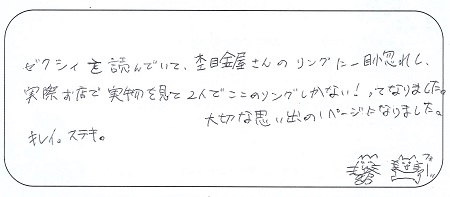 ゼクシィを読んでいて、杢目金屋さんのリングに一目惚れし、
実際お店で実物を見て2人でここのリングしかない！ってなりました。
大切な思い出の1ページになりました。
キレイ。ステキ。
フォーッ